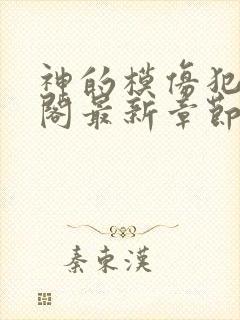 神的模傷犯
閣最新章節
秦東漢